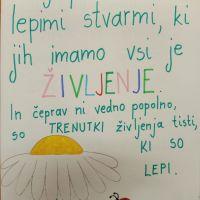 lepimi stvarmi, ki
jih imamo vsi je
ŽIVLJENJE.
In čeprav ni vedno popolno,
so TRENUTKI življenja tisti,
KI SO
LEPI.